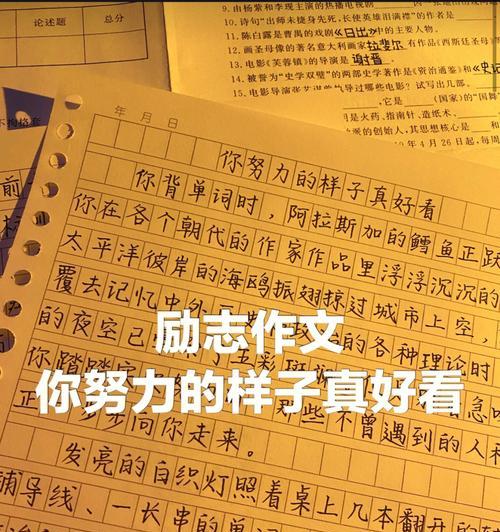 9. 由杨紫和李现主演的热播剧
10. 诗句"出师未捷身先死,长使英雄泪满襟"的作者是
11. 陈白露是曹禺的戏剧《日出》中的主要人物。
12. 画圣母像的著名意大利画家拉斐尔,有作品《西斯廷圣母》
13. 电影《芙蓉镇》的导演是谢晋。
14. 被誉为"史学双璧"的两部史学著作是《资治通鉴》和《史记
15. 电影导演张艺谋执导过哪些电影?试写出几部。
,它是
(国家)的"国舞"
是火药、指南针、造纸术、
的创始人,其思想核心是
年4月26日起,每周
题号
总分
得分
不拘格套
年 月 日
你努力的样子真好看
你背单词时,阿拉斯加的鳕鱼正跃
你在各个朝代的作家作品里浮浮沉沉的
太平洋彼岸的海鸥振翅掠过城市上空,
覆去记忆中外
的各种理论时
的夜空
五彩斑斓
你踏踏实
那些不曾遇到的人和
步步向你走来。
发亮的白织灯照着桌上几本翻开的
辅导线、一长串的单词
励志作文
你努力的样子真好看